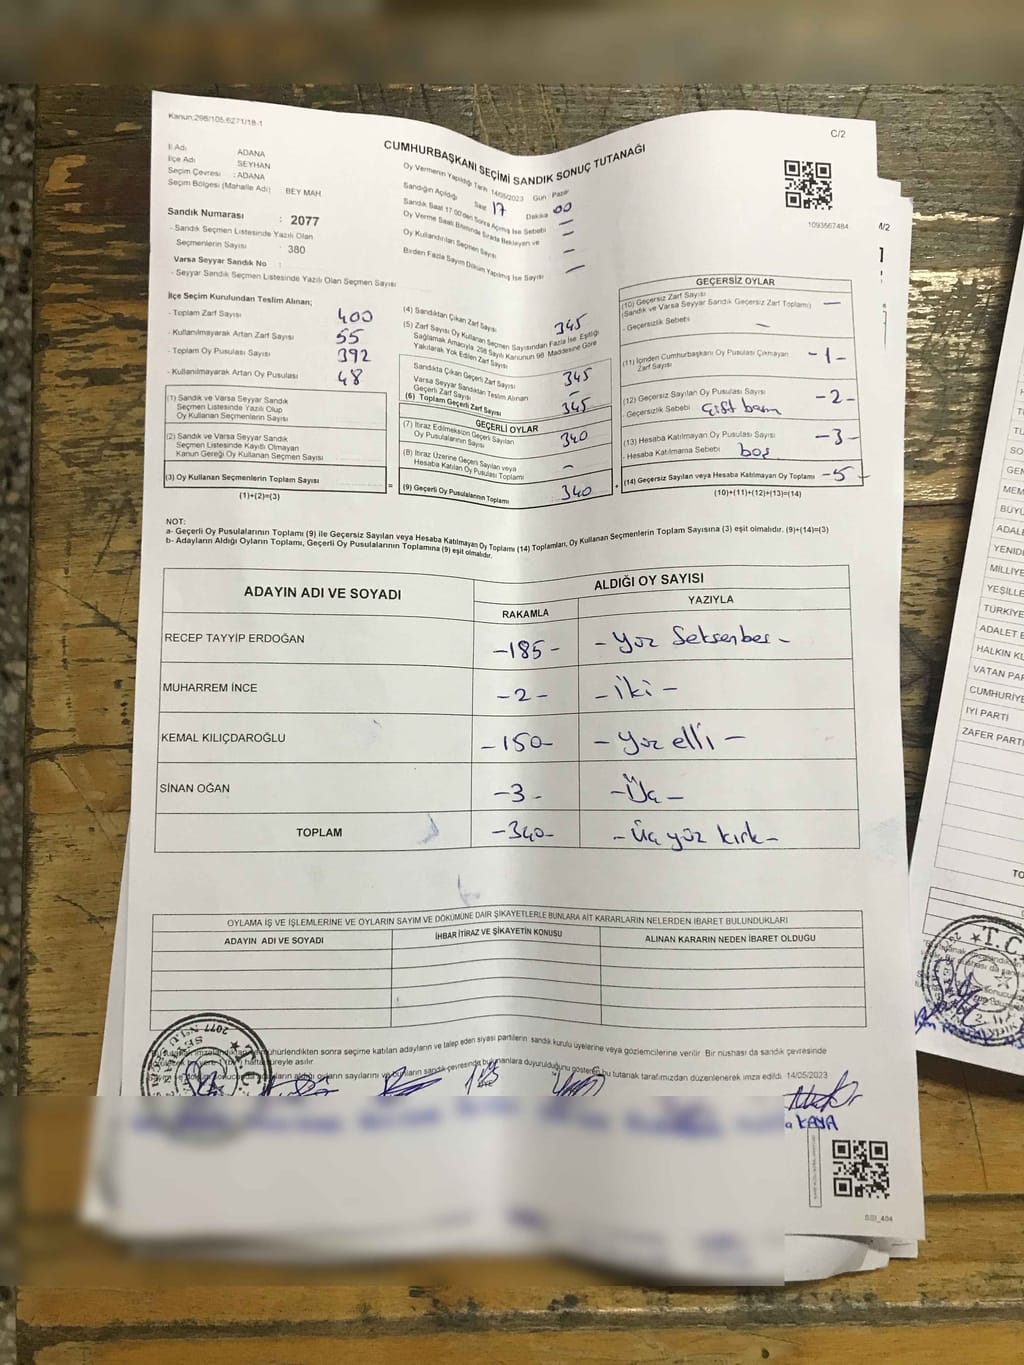 Kanun:298/105;6271/18-1
C/2
CUMHURBAŞKANI SEÇİMİ SANDIK SONUÇ TUTANAĞI
İl Adı ADANA
İlçe Adı SEYHAN
Seçim Çevresi : ADANA
Seçim Bölgesi (Mahalle Adı) BEY MAH
Sandık Numarası : 2077
- Sandık Seçmen Listesinde Yazılı Olan
Seçmenlerin Sayısı : 380
Varsa Seyyar Sandık No :
- Seyyar Sandık Seçmen Listesinde Yazılı Olan Seçmen Sayısı
Oy Vermenin Yapıldığı Tarih 14/05/2023 Gün Pazar
Sandığın Açıldığı Saat 17 Dakika 00
Sandık Saat 17:00'den Sonra Açılmış İse Sebebi —
Oy Verme Saati Bitiminde Sırada Bekleyen ve
Oy Kullandırılan Seçmen Sayısı —
Birden Fazla Sayım Döküm Yapılmış İse Sayısı —
1093567484
İlçe Seçim Kurulundan Teslim Alınan;
- Toplam Zarf Sayısı 400
- Kullanılmayarak Artan Zarf Sayısı 55
- Toplam Oy Pusulası Sayısı 392
- Kullanılmayarak Artan Oy Pusulası 48
(1) Sandık ve Varsa Seyyar Sandık
Seçmen Listesinde Yazılı Olup
Oy Kullanan Seçmenlerin Sayısı
(2) Sandık ve Varsa Seyyar Sandık
Seçmen Listesinde Kayıtlı Olmayan
Kanun Gereği Oy Kullanan Seçmen Sayısı
(3) Oy Kullanan Seçmenlerin Toplam Sayısı
(1)+(2)=(3)
(4) Sandıktan Çıkan Zarf Sayısı 345
(5) Zarf Sayısı Oy Kullanan Seçmen Sayısından Fazla İse Eşitliği
Sağlamak Amacıyla 298 Sayılı Kanunun 98. Maddesine Göre
Yakılarak Yok Edilen Zarf Sayısı
Sandıkta Çıkan Geçerli Zarf Sayısı 345
Varsa Seyyar Sandıktan Teslim Alınan
Geçerli Zarf Sayısı —
(6) Toplam Geçerli Zarf Sayısı 345
GEÇERLİ OYLAR
(7) İtiraz Edilmeksizin Geçerli Sayılan
Oy Pusulalarının Sayısı 340
(8) İtiraz Üzerine Geçerli Sayılan veya
Hesaba Katılan Oy Pusulası Toplamı —
= (9) Geçerli Oy Pusulalarının Toplamı 340
GEÇERSİZ OYLAR
(10) Geçersiz Zarf Sayısı
(Sandık ve Varsa Seyyar Sandık Geçersiz Zarf Toplamı) —
- Geçersizlik Sebebi —
(11) İçinden Cumhurbaşkanı Oy Pusulası Çıkmayan
Zarf Sayısı -1-
(12) Geçersiz Sayılan Oy Pusulası Sayısı -2-
- Geçersizlik Sebebi
(13) Hesaba Katılmayan Oy Pusulası Sayısı -3-
- Hesaba Katılmama Sebebi boş
+ (14) Geçersiz Sayılan veya Hesaba Katılmayan Oy Toplamı -5-
(10)+(11)+(12)+(13)=(14)
NOT:
a- Geçerli Oy Pusulalarının Toplamı (9) ile Geçersiz Sayılan veya Hesaba Katılmayan Oy Toplamı (14) Toplamları, Oy Kullanan Seçmenlerin Toplam Sayısına (3) eşit olmalıdır. (9)+(14)=(3)
b- Adayların Aldığı Oyların Toplamı, Geçerli Oy Pusulalarının Toplamına (9) eşit olmalıdır.
ADAYIN ADI VE SOYADI ALDIĞI OY SAYISI
RAKAMLA YAZIYLA
RECEP TAYYİP ERDOĞAN -185- -Yüz Seksenbes-
MUHARREM İNCE -2- -iki-
KEMAL KILIÇDAROĞLU -150- -Yüz elli-
SİNAN OĞAN -3- -Üç-
TOPLAM -340- -Üç yüz kırk-
OYLAMA İŞ VE İŞLEMLERİNE VE OYLARIN SAYIM VE DÖKÜMÜNE DAİR ŞİKAYETLERLE BUNLARA AİT KARARLARIN NELERDEN İBARET BULUNDUKLARI
ADAYIN ADI VE SOYADI İHBAR İTİRAZ VE ŞİKAYETİN KONUSU ALINAN KARARIN NEDEN İBARET OLDUĞU
mühürlendikten sonra seçime katılan adayların ve talep eden siyasi partilerin sandık kurulu üyelerine veya gözlemcilerine verilir. Bir nüshası da sandık çevresinde
hafta süreyle asılır.
aldığı oyların sayılarını ve bunların sandık çevresinde bulunanlara duyurulduğunu gösteren bu tutanak tarafımızdan düzenlenerek imza edildi. 14/05/2023
KAYA
T.C.
2077
M/2
YENİD
MİLLİYE
YEŞİLLE
TÜRKİYE
ADALET B
HALKIN KU
VATAN PAR
CUMHURİYE
İYİ PARTİ
ZAFER PARTİ
TO
T.C.